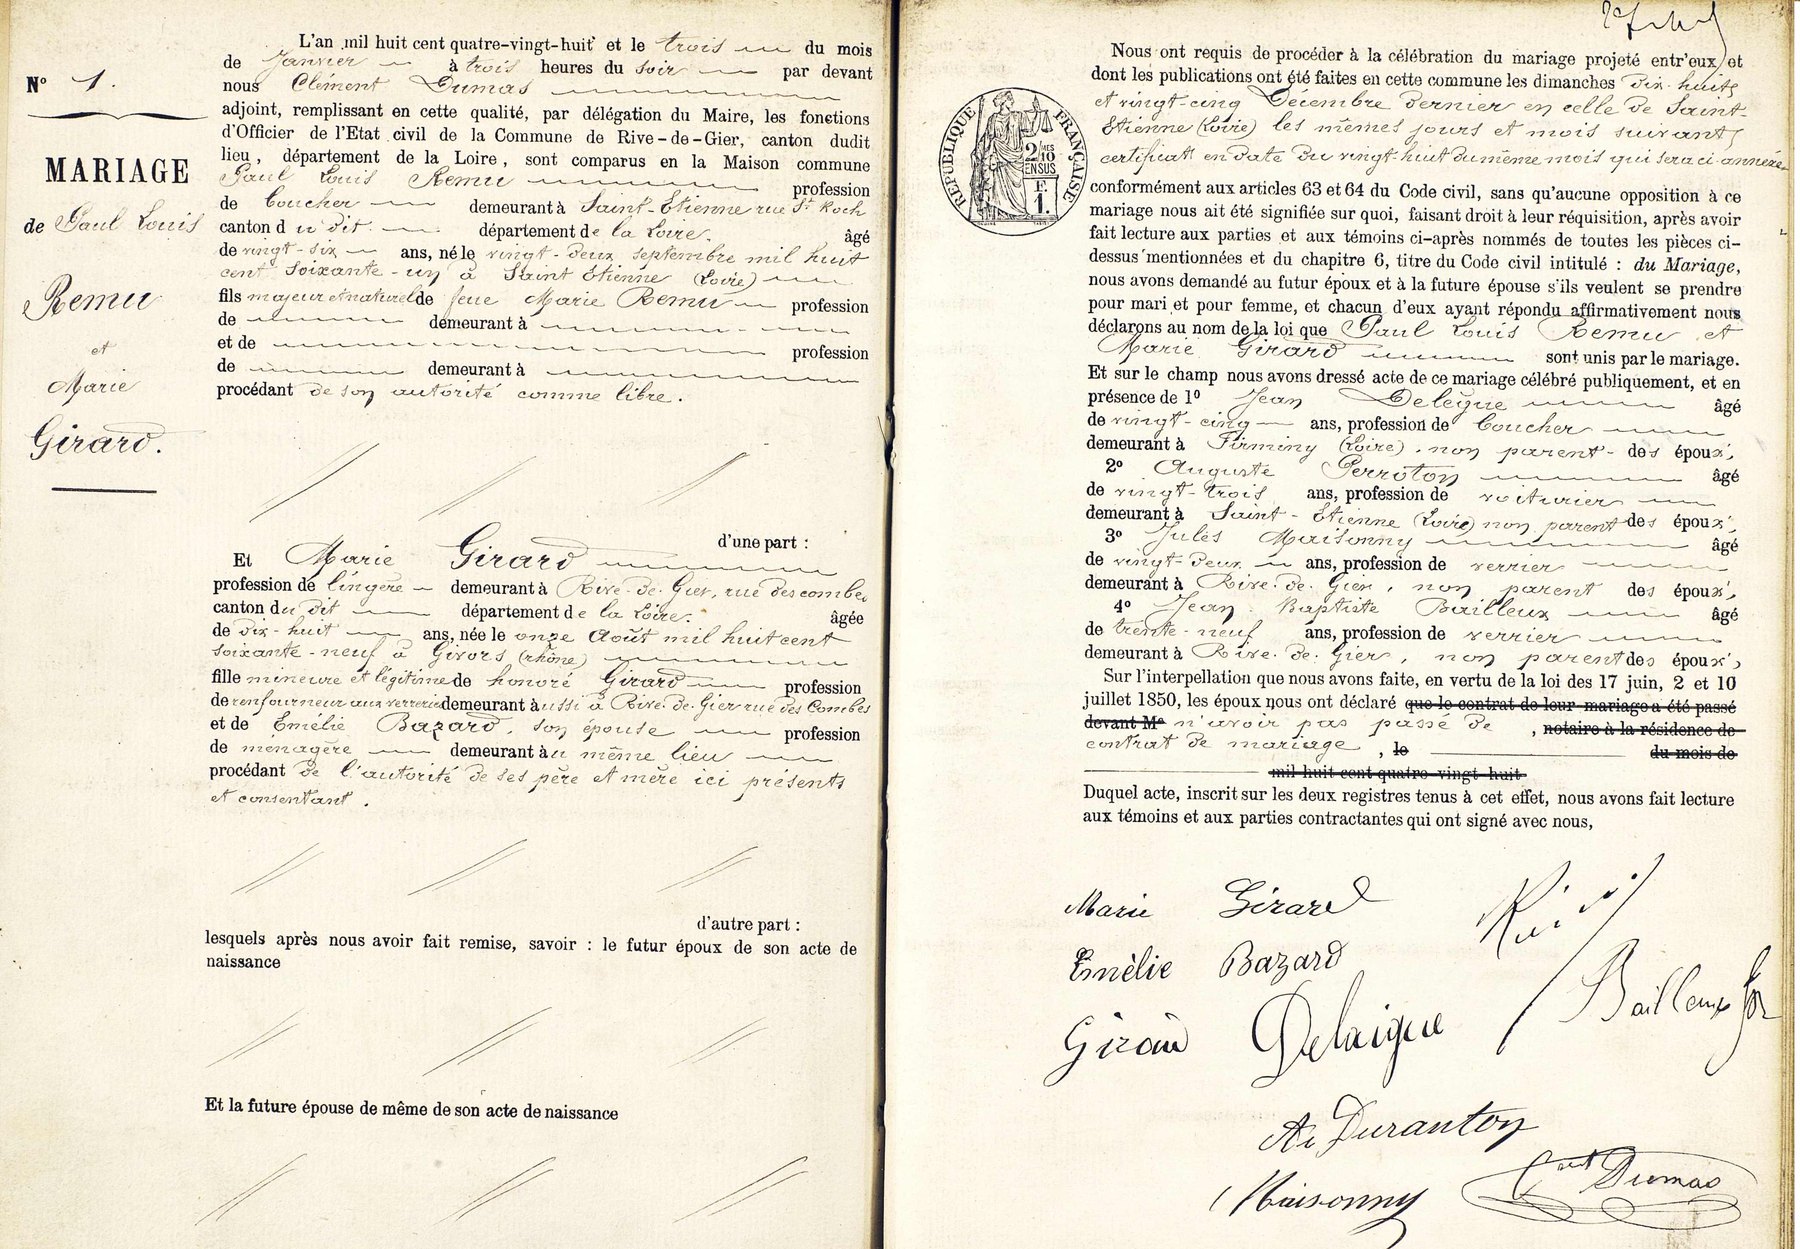 N° 1.
MARIAGE
de Paul Louis
Remu
et
Marie
Girard.
L'an mil huit cent quatre-vingt-huit et le trois du mois
de Janvier à trois heures du soir par devant
nous Clément Dumas
adjoint, remplissant en cette qualité, par délégation du Maire, les fonctions
d'Officier de l'Etat civil de la Commune de Rive-de-Gier, canton dudit
lieu, département de la Loire, sont comparus en la Maison commune
Paul Louis Remu profession
de Coucher demeurant à Saint-Etienne rue St Roch
canton du dit département de la Loire. âgé
de vingt-six ans, né le vingt-deux septembre mil huit
cent soixante-un à Saint Etienne (Loire)
fils majeur et naturel de feue Marie Remu profession
de demeurant à
et de profession
de demeurant à
procédant de son autorité comme libre.
d'une part :
Et Marie Girard
profession de lingère demeurant à Rive-de-Gier, rue des combes
canton du dit département de la Loire. âgée
de dix-huit ans, née le onze Août mil huit cent
soixante-neuf à Givors (rhône)
fille mineure et légitime de honoré Girard profession
de renfourneur aux verreries demeurant aussi à Rive-de-Gier rue des Combes
et de Emélie Bazard, son épouse profession
de ménagère demeurant au même lieu
procédant de l'autorité de ses père et mère ici présents
et consentant.
d'autre part :
lesquels après nous avoir fait remise, savoir : le futur époux de son acte de
naissance
Et la future épouse de même de son acte de naissance
Nous ont requis de procéder à la célébration du mariage projeté entr'eux et
dont les publications ont été faites en cette commune les dimanches dix-huit
et vingt-cinq Décembre dernier en celle de Saint-
Etienne (Loire) les mêmes jours et mois suivant
certificat en date du vingt-huit du même mois qui sera ci-annexé
RÉPUBLIQUE FRANÇAISE
2/10MES
EN SUS
F.
1.
conformément aux articles 63 et 64 du Code civil, sans qu'aucune opposition à ce
mariage nous ait été signifiée sur quoi, faisant droit à leur réquisition, après avoir
fait lecture aux parties et aux témoins ci-après nommés de toutes les pièces ci-
dessus mentionnées et du chapitre 6, titre du Code civil intitulé : du Mariage,
nous avons demandé au futur époux et à la future épouse s'ils veulent se prendre
pour mari et pour femme, et chacun d'eux ayant répondu affirmativement nous
déclarons au nom de la loi que Paul Louis Remu et
Marie Girard sont unis par le mariage.
Et sur le champ nous avons dressé acte de ce mariage célébré publiquement, et en
présence de 1° Jean Delègue âgé
de vingt-cinq ans, profession de Coucher
demeurant à Firminy (Loire), non parent des époux,
2° Auguste Perroton âgé
de vingt-trois ans, profession de voiturier
demeurant à Saint-Etienne (Loire) non parent des époux,
3° Jules Maisonny âgé
de vingt-deux ans, profession de verrier
demeurant à Rive-de-Gier, non parent des époux,
4° Jean-Baptiste Bailleux âgé
de trente-neuf ans, profession de verrier
demeurant à Rive-de-Gier, non parent des époux,
Sur l'interpellation que nous avons faite, en vertu de la loi des 17 juin, 2 et 10
juillet 1850, les époux nous ont déclaré que le contrat de leur mariage a été passé
devant Me n'avoir pas passé de , notaire à la résidence de
contrat de mariage , le du mois de
mil huit cent quatre-vingt-huit
Duquel acte, inscrit sur les deux registres tenus à cet effet, nous avons fait lecture
aux témoins et aux parties contractantes qui ont signé avec nous,
Marie Girard
Emélie Bazard
Bailleux
Girard Delaigue
Duranton
Maisonny
Dumas